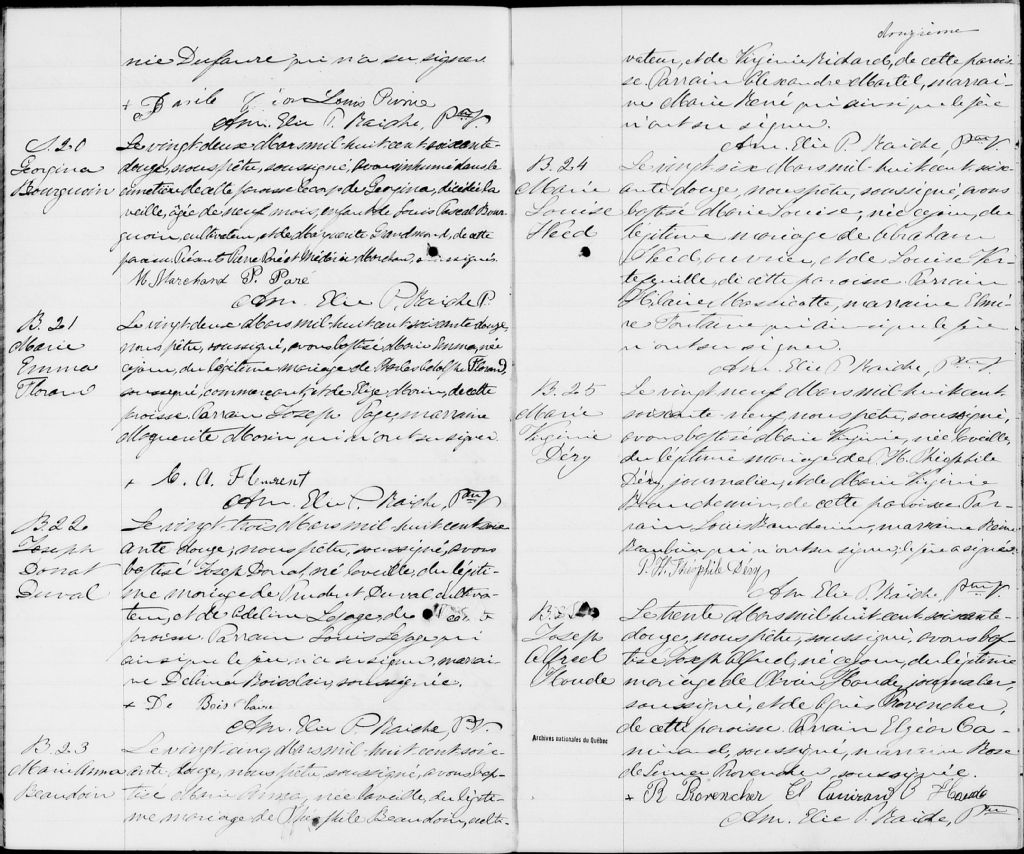 nie Dufaure qui n'a su signer.
+ Basile Louis Pivine
Am. Elie P. Raiche, Ptre V.
S. 20
Georgina
Bourguoin
Le vingt-deux Mars mil-huit cent soixante-
douze, nous prêtre, soussigné, avons inhumé dans le
cimetière de cette paroisse le corps de Georgina, décédée la
veille, âgée de neuf mois, enfant de Louis Pascal Bour-
guoin, cultivateur, et de Marguerite Grandmont, de cette
paroisse. Présents Pierre Paré et Médéric Marchand, soussignés.
M. Marchand P. Paré
Am. Elie P. Raiche P.
B. 21
Marie
Emma
Florand
Le vingt-deux Mars mil-huit cent soixante douze,
nous prêtre, soussigné, avons baptisé Marie Emma, née
ce jour, du légitime mariage de Charles Adolphe Florand,
soussigné, commerçant, et de Elize Morin, de cette
paroisse. Parrain Joseph Page, marraine
Marguerite Morin qui n'ont su signer.
+ C. A. Flurent
Am. Elie P. Raiche, Ptre V.
B. 22
Joseph
Donat
Duval
Le vingt trois Mars mil huit cent soix-
ante douze, nous prêtre, soussigné, avons
baptisé Joseph Donat, né la veille, du légiti-
me mariage de Prudent Duval, cultiva-
teur, et de Adeline Lepage, de cette
paroisse. Parrain Louis Lepage qui
ainsi que le père n'a su signer, marrai-
ne Delima Boisclair, soussignée.
+ De Bois Claire
Am. Elie P. Raiche, P. V.
B. 23
Marie Anna
Beaudoin
Le vingt cinq Mars mil-huit cent soix-
ante, douze, nous prêtre, soussigné, avons bap-
tisé Marie Anna, née la veille, du légiti-
me mariage de Théophile Beaudoin, culti-
onzième
vateur, et de Virginie Richard, de cette parois-
se. Parrain Alexandre Martel, marrai-
ne Marie René qui ainsi que le père
n'ont su signer.
Am. Elie P. Raiche, Ptre V.
B. 24
Marie
Louise
Heed
Le vingt six Mars mil-huit cent soix-
ante douze, nous prêtre, soussigné, avons
baptisé Marie Louise, née ce jour, du
légitime mariage de Abraham
Heed, ouvrier, et de Louise
de cette paroisse. Parrain
Hilaire Massicotte, marraine Elmi-
re Fontaine qui ainsi que le père
n'ont su signer.
Am. Elie P. Raiche, Ptre V.
B. 25
Marie
Virginie
Déry
Le vingt neuf Mars mil huit cent
soixante - neuf nous prêtre, soussigné,
avons baptisé Marie Virginie, née la veille,
du légitime mariage de P. H. Théophile
Déry, journalier, et de Marie Virginie
Beauchemin, de cette paroisse. Par-
rain Louis Beaudoin, marraine Reine
Beaubien qui n'ont su signer; le père a signé.
P. H. Théophile Déry
Am. Elie P. Raiche, Ptre V.
B. 2
Joseph
Alfred
Houde
Le trente Mars mil huit cent soixante-
douze, nous prêtre, soussigné, avons bap-
tisé Joseph Alfred, né ce jour, du légitime
mariage de Olivier Houde, journalier,
soussigné, et de Agnès Provencher,
de cette paroisse. Parrain Elzéar Ca-
nirand, soussigné, marraine Rose
de Lima Provencher, soussignée.
+ R Provencher El Canirand O Houde
Am. Elie P. Raiche, Ptre
Archives nationales du Québec